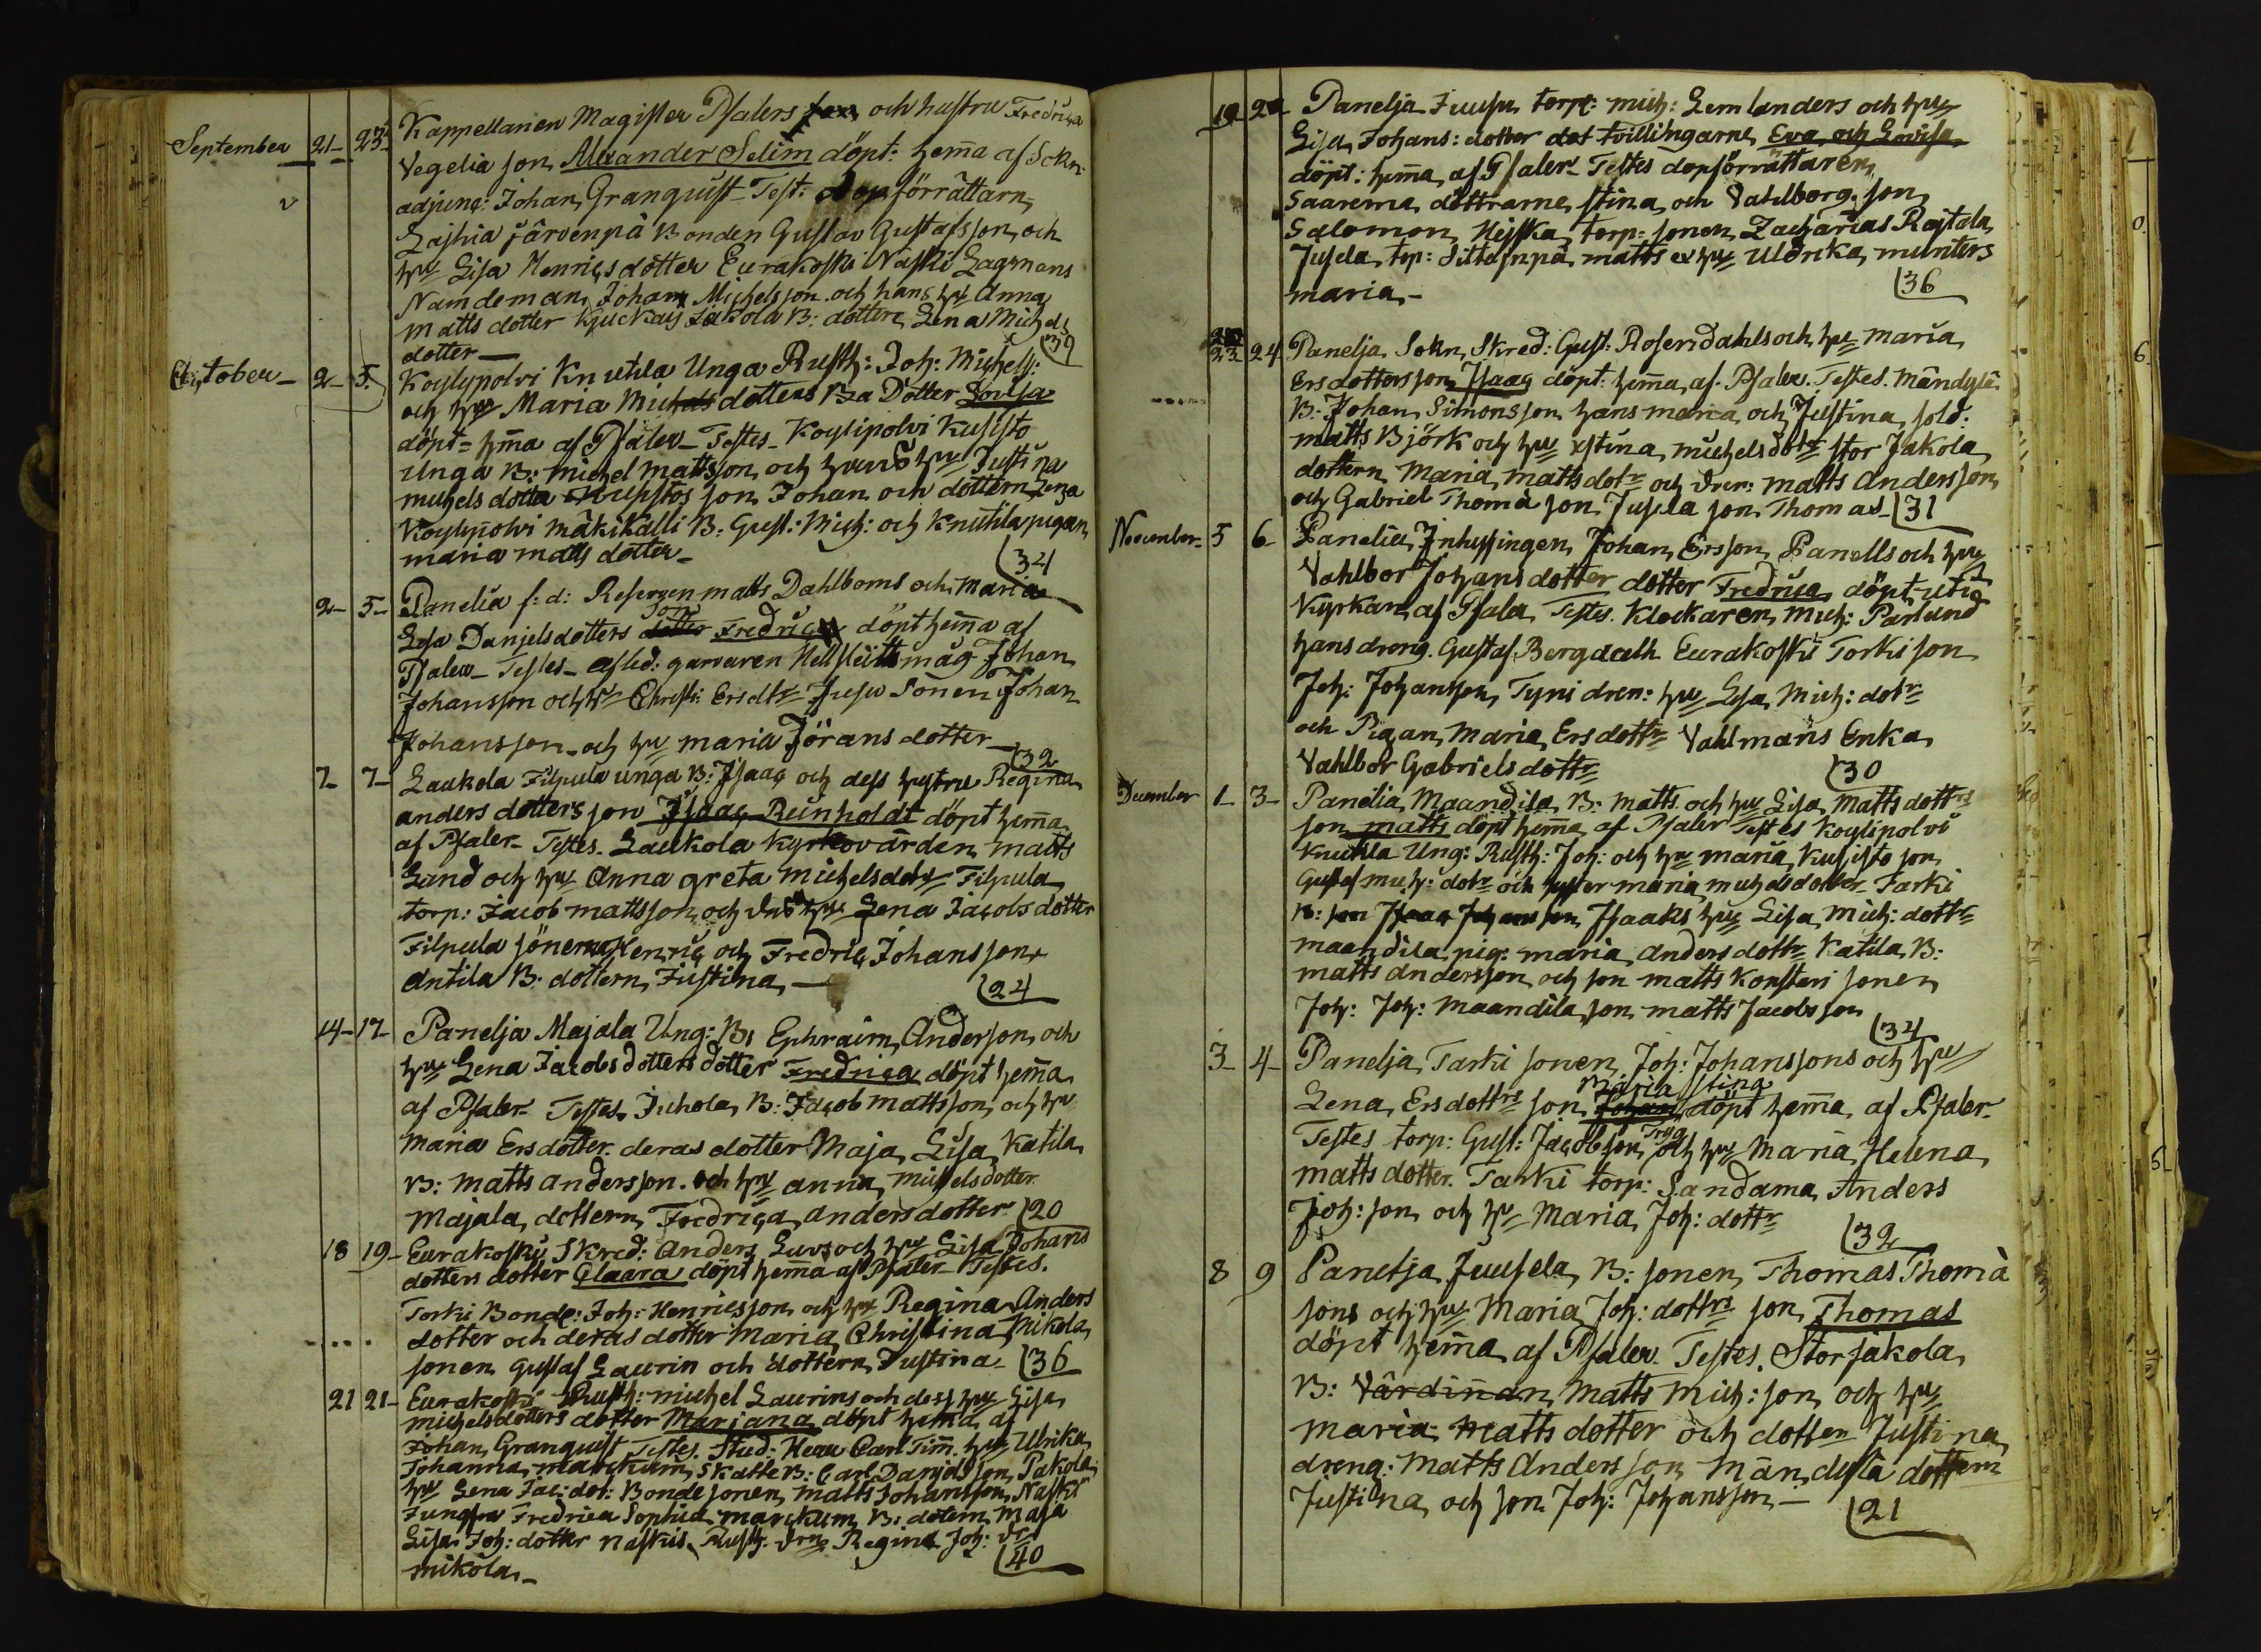 September 21- 23- Kappellanen Magister Psalers och hustru Fredrica
Vegelia son Alexander Selim döpt: hema af Sokn:
adjunc: Johan Granquist - Test: dopförrättarn,
Lajhia järvenpä Bonden Gustav Gustafsson, och
hu Lisa Henricsdotter Eurakoski Naski Lagmans
Namdeman, Johan Michelsson och hans hu Anna
Matts dotter Kjuckais Jakola B: dottern Lena Michels
dotter - 39
October- 2- 5. Koylypolvi Knutila Unga Rusth: Joh: Michelss:
och hu Maria Michels dotters dotter Lovisa
döpt hma af Psaler - Testes - Koylipolvi Kusisto
Unga B: Michel Mattsson, och hu Justina
michels dotter son Johan och dottern Lena
Koylypolvi mäkikalli B: Gust: Mich: och Knutila pigan,
maria matts dotter - 34
2- 5- Panelia f: d: Reserven matts Dahlboms och Maria
son
Lisa Danjelsdotters dotter Fredric döpt hema af
Psaler - Testes - afsked: garvaren måg Johan
Johansson och hu Christ: Ersdtr Jusu Sonen Johan
Johansson - och hu maria Jörans dotter - 32
7- 7- Laukola Filpula unga B: Isaac och dess hustru Regina
anders dotters son Isaac Reinholdt döpt hemma
af Psaler - Testes. Laukola Kyrkovärden matts
Land och hu Anna greta Michelsdotr Filpula
torp: Jacob mattsson, och hu Lena Jacobs dotter
Filpula sönerna Henric och Fredric Johanssons
Antila B: dottern Justina, - 24
14- 17- Panelja Majala Ung: B: Ephraim Andersson, och
hu Lena Jacobs dotters dotter Fredrica döpt hema
af Psaler - Testes Juhola B: Jacob mattsson, och hu
Maria Ersdotter. deras dotter Maja Lisa Katila
B: matts andersson. och hu anna michelsdotter
Majala dottern Fredrica anders dotter 20
18 19- Eurakoski Skred: Anders Luvs och hu Lisa Johans
dotters dotter Claara döpt hema af Psaler - Testes.
Torki Bonde: Joh: Henricsson och hu Regina Anders
dotter och deras dotter Maria Christina Mikola
sonen Gustaf Laurin och dottern Justina - 36
21 21- Eurakoski Rusth: michel Laurins och dess hu Lisa
michelsdotters dotter Marjana döpt hema af
Johan Granquist Testes. Stud: Herr Carl Timm. hu Ulrika
Johanna marckum, Skatte B: Carl Danjelsson, Jakola
hu Lena Jac: dot: Bonde sonen, matts Johansson, Naski
Jungfru Fredrica Sophia marckum B: dotern Maja
Lisa Joh: dotter naskis Rusth: Regina Joh: dr
mikola - 40
19- 20- Panelja Juusu torp: mich: Semlanders och hu
Lisa Johans: dotter tvillingarne Eva och Lovisa
döpt: hema, af Psaler - Testes dopförrättaren,
Saarema döttrarne Stina och Vahlborg, son
Salomon Heiska torp: sonen Zacharias Rajtala
Jusela torp: matts ex hu Ulörika munters
maria, - 36
23 24 Panelja Sokn, Skred: Gust: Rosendahls och hu maria
Ersdotters son Isaac döpt: hema, af Psaler. Testes. Mändylä
B: Johan Simonsson hans maria och Justina, sold:
matts Björk och hu stina, michelsdotr stor Jakola
dottern Maria matts dotr och matts Andersson
och Gabriel Thomä son, Jusela son Thomas - 31
November- 5 6 Panelia Inhysingen Johan Ersson Panells och hu
Vahlbor Johansdotter dotter Fredrica döpt uti
Kyrkan, af Psaler Testes. Klockaren, Mich: Parlund
hans dreng. Gustaf Bergdalh Eurakoski Torki son
Joh: Johansson, Tyni dren: hu Lisa Mich: dotr
och Pigan Maria Ersdottr Vahlmans Erika
Vahlbor Gabrielsdottr 30
December 1- 3- Panelia Maandila B: matts och hu Lisa Matts dottrs
son matts döpt hema af Psaler Testes Koylipolvi
Knutila Ung: Rusth: Joh: och hu maria Kusisto son
Gustaf mich: dotr och syster maria michelsdotter Tarki
B: Isaaks hu Lisa Mich: dottr
maandila pig: maria andersdottr Katila B:
matts andersson, och son matts Konsteri sonen
Joh: Joh: Maandila son matts Jacobsson 34
3- 4- Panelja Tarki sonen, Joh: Johanssons och hu
Maria Stina
Lena Ersdottrs son Johan döpt hema af Psaler -
Testes torp: Gust: Jacobsson, och hu Maria Helena
matts dotter. Tarki torp: Sandama Anders
Joh: son och hu Maria Joh: dottr 32
8 9 Panelja Juusela B: sonen Thomas Thomä
sons och hu Maria Joh: dottrs son Thomas
döpt hema af Psaler. Testes. Storjakola
B: Värdinan Matts Mich: son och hu
maria matts dotter och dotter Justina
dreng: Matts Andersson Mändylä dottern
Justina och son Joh: Johansson - 21